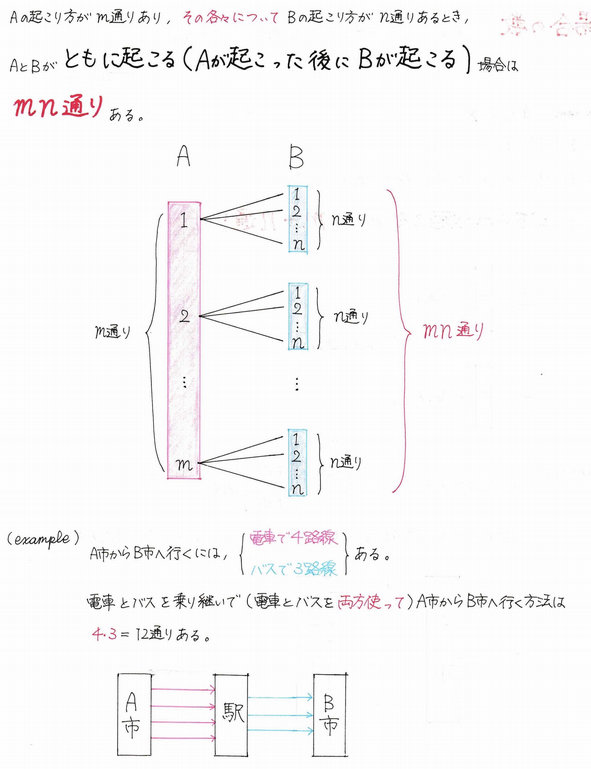 Aの起こり方がm通りあり，その各々についてBの起こり方がn通りあるとき，
AとBがともに起こる(Aが起こった後にBが起こる)場合は
mn通りある。
A B
1
1
2
⋮
n
n通り
m通り
2
1
2
⋮
n
n通り
mn通り
⋮ ⋮
m
1
2
⋮
n
n通り
(example)
A市からB市へ行くには，{電車で4路線 バスで3路線}ある。
電車とバスを乗り継いで(電車とバスを両方使って)A市からB市へ行く方法は
4・3=12通りある。
A市 駅 B市